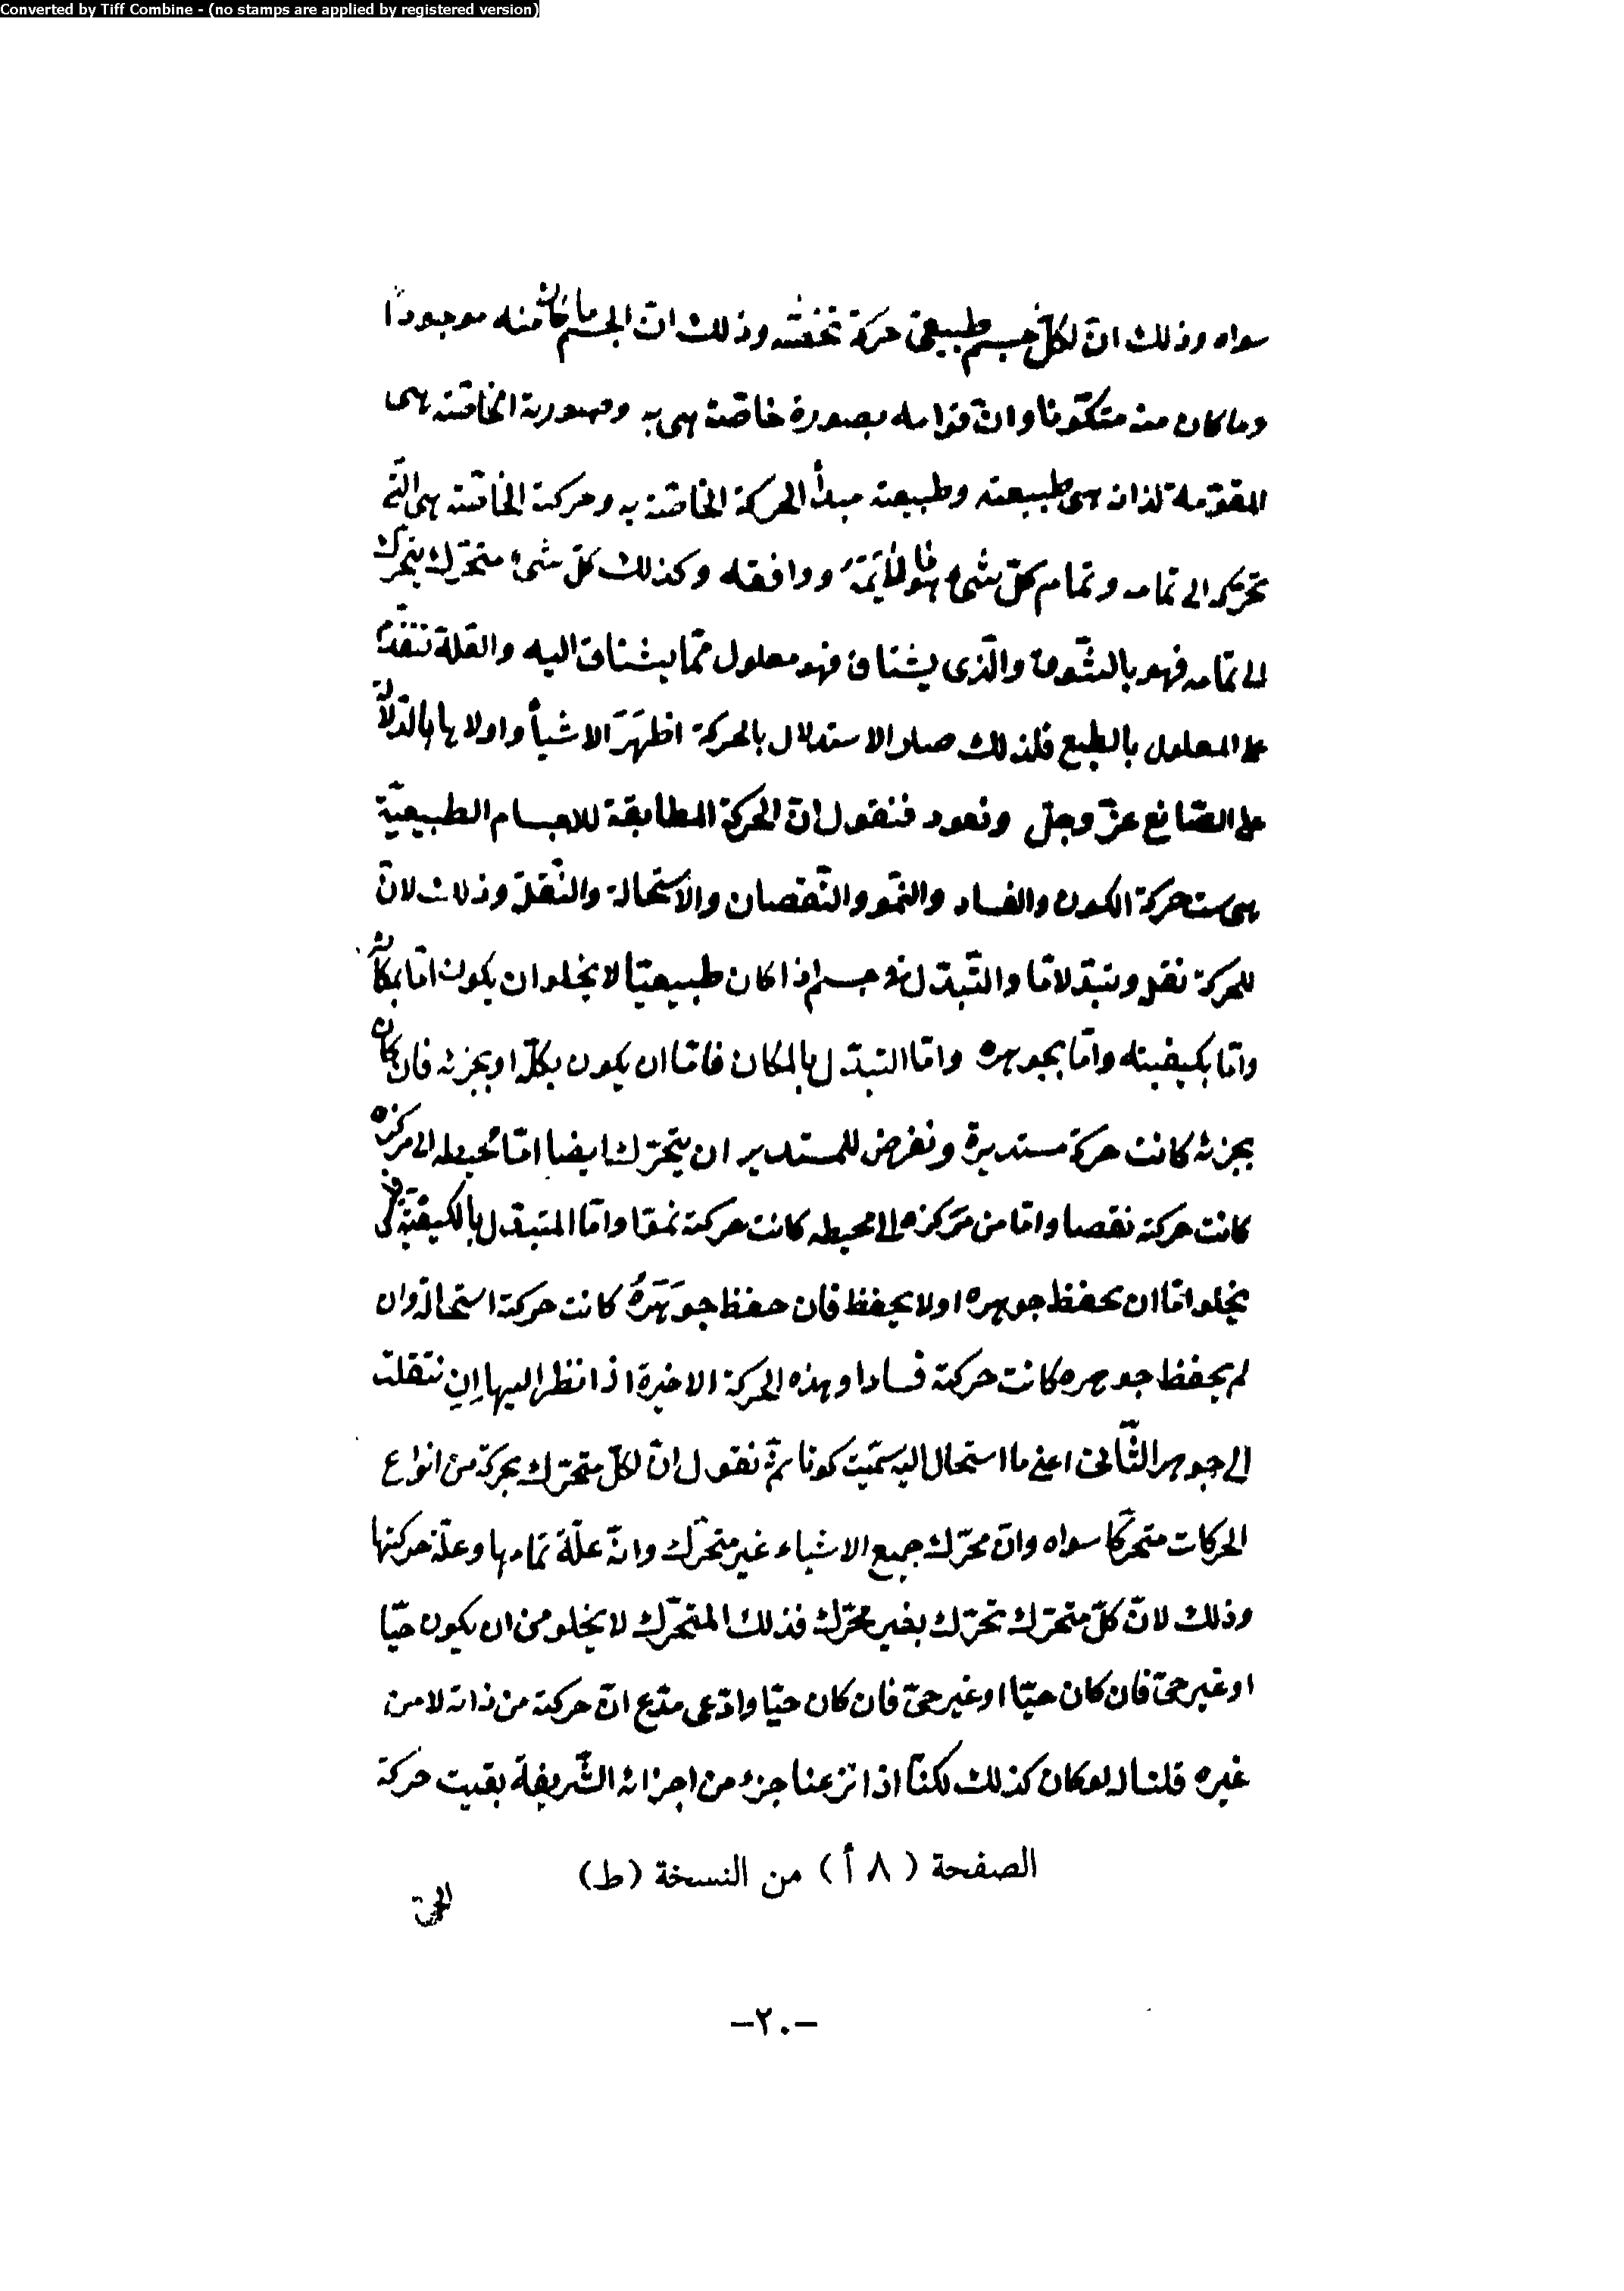 Converted by Tiff Combine - (no stamps are applied by registered version)
سواه وذلك انّ لكلّ جسم طبيعىّ حركة تخصّه وذلك انّ الجسم ما كان منه موجودا
وما كان منه متكوّنا وانّ قوامه بصورة خاصّة هى به وصورية الخاصّة هى
المقوّمة لذاته هى طبيعته وطبيعته مبدأ الحركة الخاصّة به وحركته الخاصّة هى الّتى
تحركه الى تمامه وتمام كلّ شئ هو ووافقه وكذلك كلّ شئ متحرّك يتحرك
الى تمامه فهو بالشّوق والّذى يشتاق فهو معلول ممّا يشتاق اليه والعلّة تتقدّم
على المعلول بالطبع فلذلك صار الاستدلال بالحركة اظهَرَ الاشيأ واولاها بالدّلالة
على الصّانع عزّ وجلّ ونعود فنقول انّ الحركة المطابقة للاجسام الطبيعيّة
هى ست حركة الكون والفساد والنّموّ والنّقصان والاستحالة والنّقل وذلك لانّ
للحركة نقل وتبدلامّا والتّبدّل فى جسم اذا كان طبيعيّا لا يخلو ان يكون امّا بمكانه
وامّا بكيفيته وامّا بجوهره وامّا التبدّل بالمكان فامّا ان يكون بكلّه او بجزئه فان كان
بجزئه كانت حركة مستديرة ونفرض للمستدير ان يتحرّك ايضا امّا محيطه الى مركزه
كانت حركته نقصا وامّا من مركزه الى محيطه كانت حركته نموّا وامّا المتبدّل بالكيفيّة فلا
يخلو امّا ان يحفظ جوهره او لا يحفظ فان حفظ جوهَرَهُ كانت حركته استحالة وان
لم يحفظ جوهره كانت حركته فسادا وهذه الحركة الاخيرة اذا نظر اليها ان نتقلت
الى جوهر الثّانى اعنى ما استحال اليه سمّيت كونا ثمّ نقول انّ لكلّ متحرّك بحركة من انواع
الحركات متحرّكا سواه وانّ محرّك جميع الاشياء غير متحرّك وانّه علّة تمامها وعلّة حركتها
وذلك لانّ كلّ متحرّك تحرّك بغير محرّك فذلك المتحرّك لا يخلو من ان يكون حيّا
او غير حىّ فان كان حيّا او غير حىّ فان كان حيّا وادّعى مدّع انّ حركته من ذاته لا من
غيره قلنا له لو كان كذلك لكنّا اذا نزعنا جزء من اجزائه الشّريفة بقيت حركة
الصفحة (٨ أ) من النسخة (ط)
الحىّ
-٢٠-